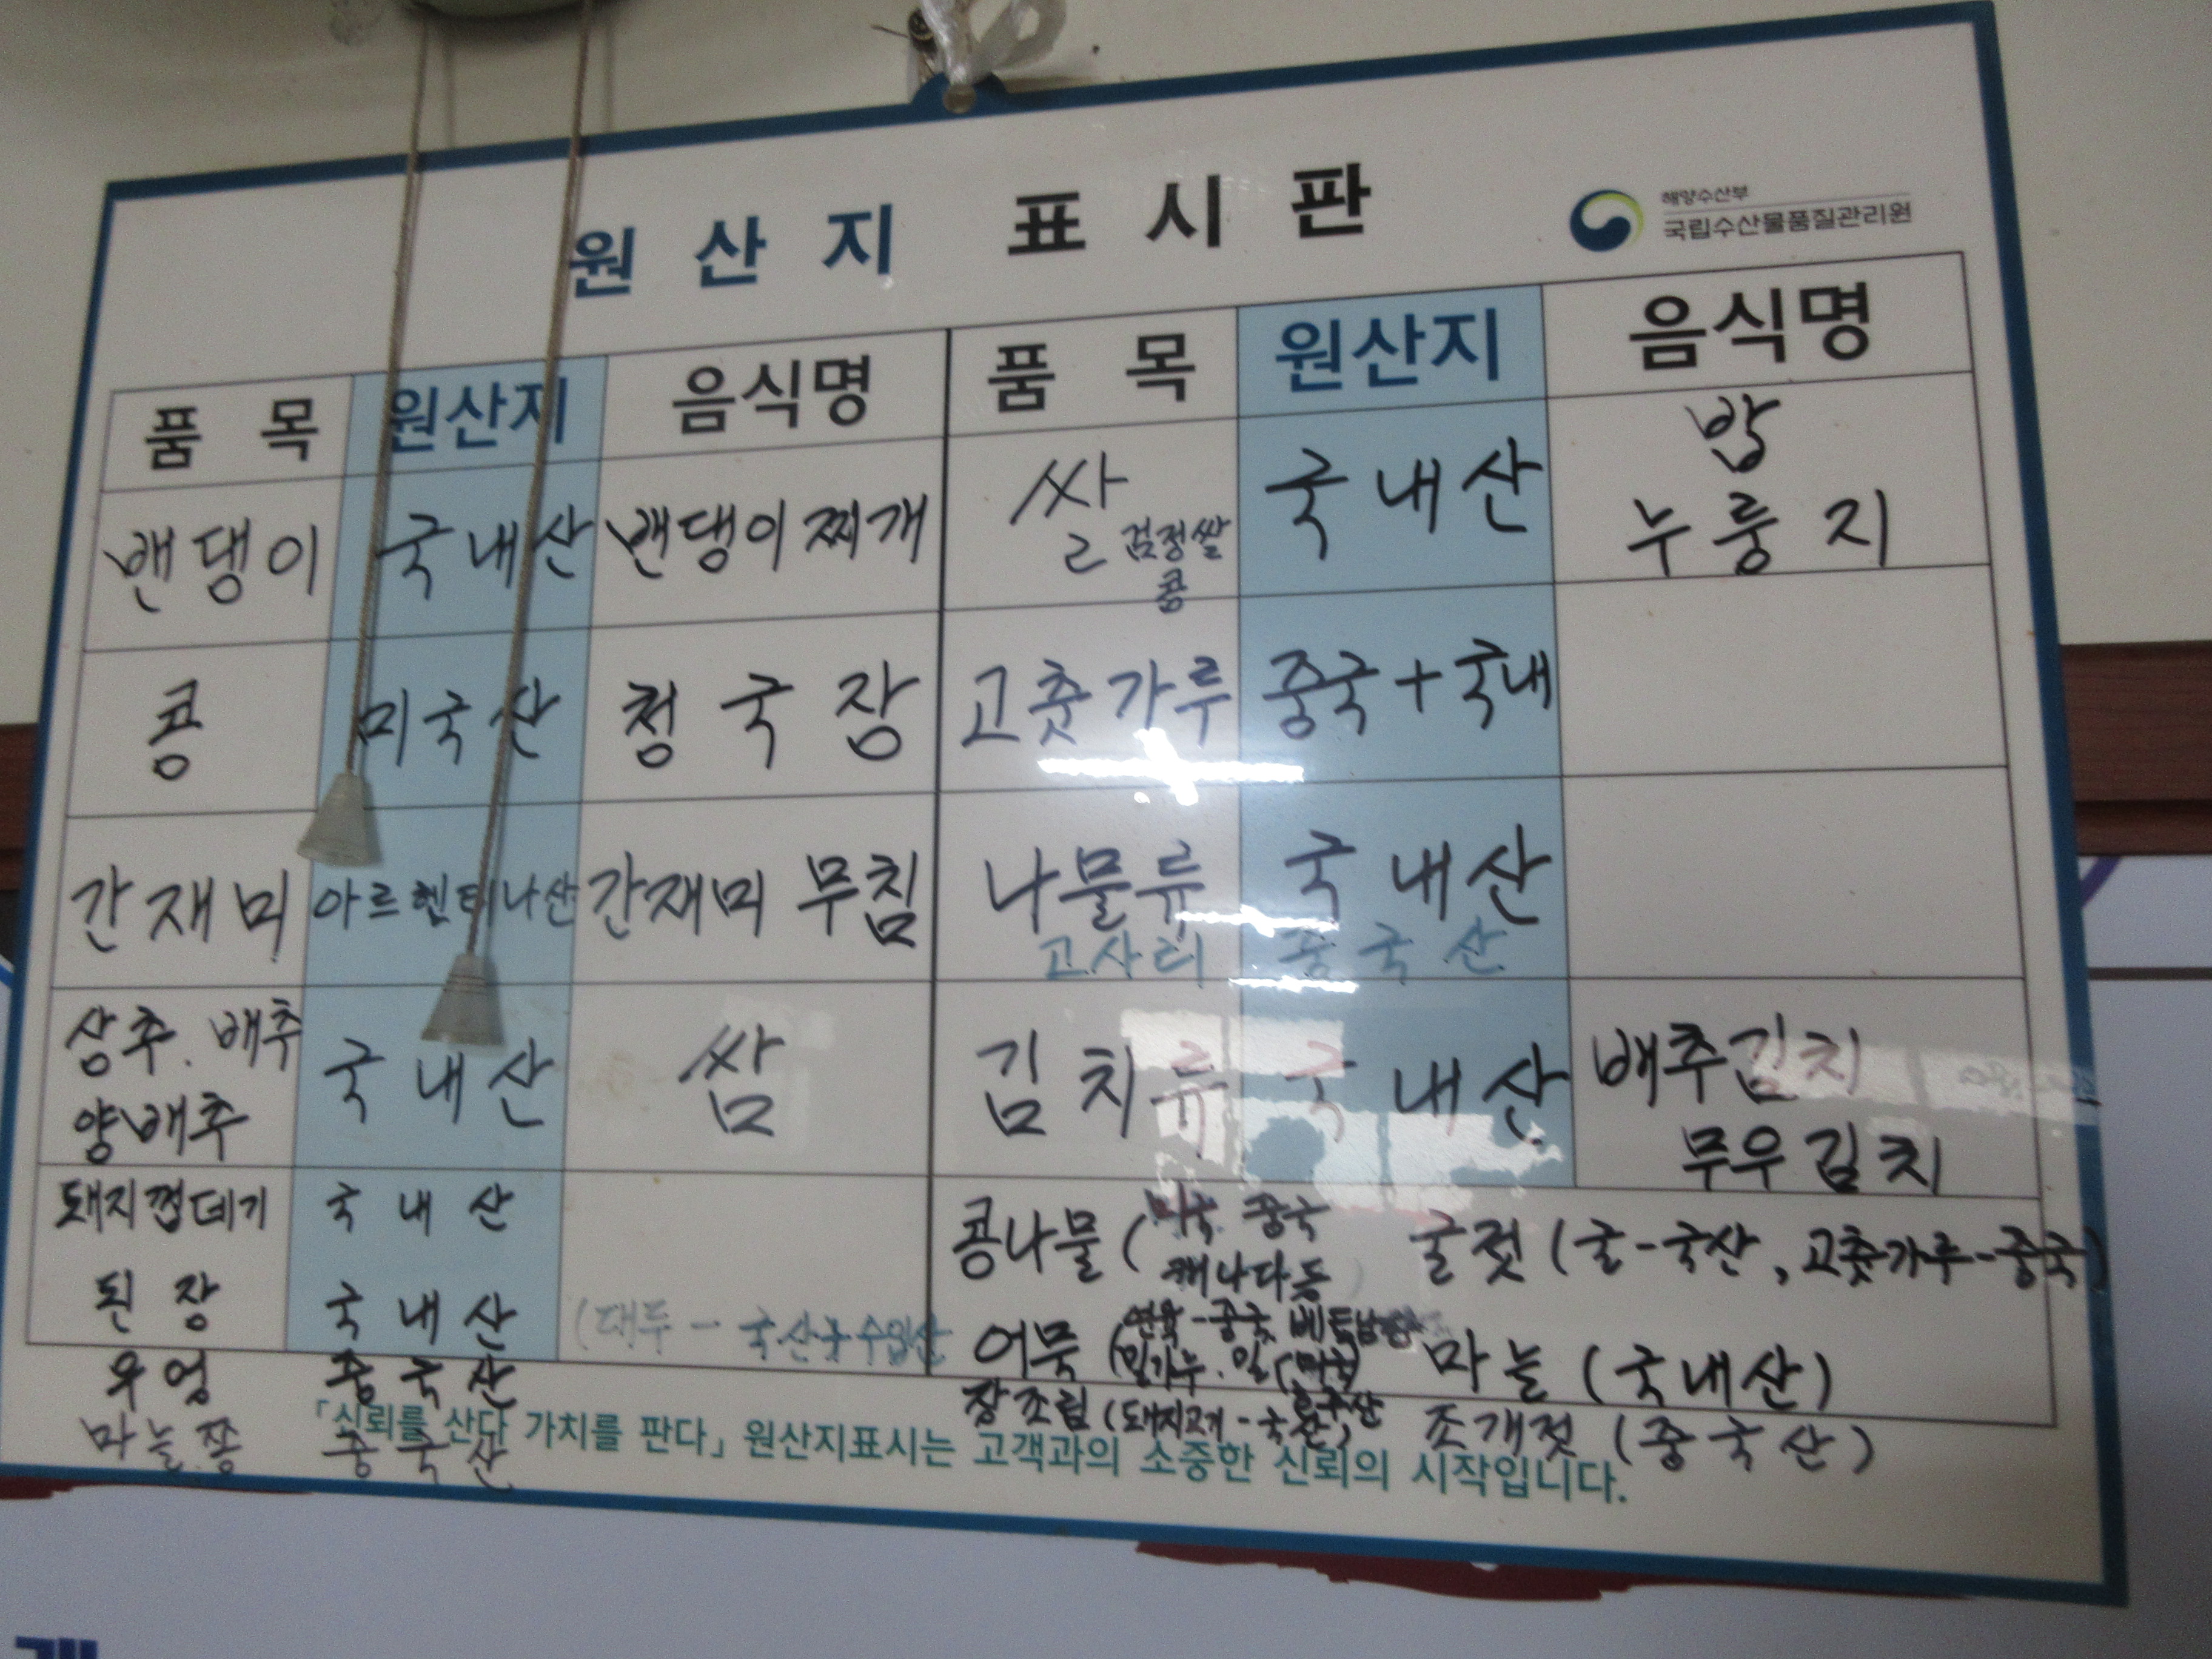 원산지 표시판
해양수산부
국립수산물품질관리원
품목 원산지 음식명 품목 원산지 음식명
밴댕이 국내산 밴댕이찌개
콩 미국산 청국장
간재미 아르헨티나산 간재미 무침
상추. 배추
양배추
국내산 쌈
돼지껍데기 국내산
된장 국내산 (대두 - 국산 수입산
우엉 중국산
마늘쫑 중국산
쌀
검정쌀
콩
국내산
밥
누룽지
고춧가루 중국+국내
나물류 국내산
고사리 중국산
김치류 국내산
배추김치
무우김치
콩나물 (미국. 중국
캐나다 등 )
굴젓 (굴-국산, 고춧가루-중국)
어묵 (연육-중국, 베트남
(밀가루. 밀 (미국)
호주산
마늘 (국내산)
장조림 (돼지고기 - 국산)
조개젓 (중국산)
「신뢰를 산다 가치를 판다」 원산지표시는 고객과의 소중한 신뢰의 시작입니다.